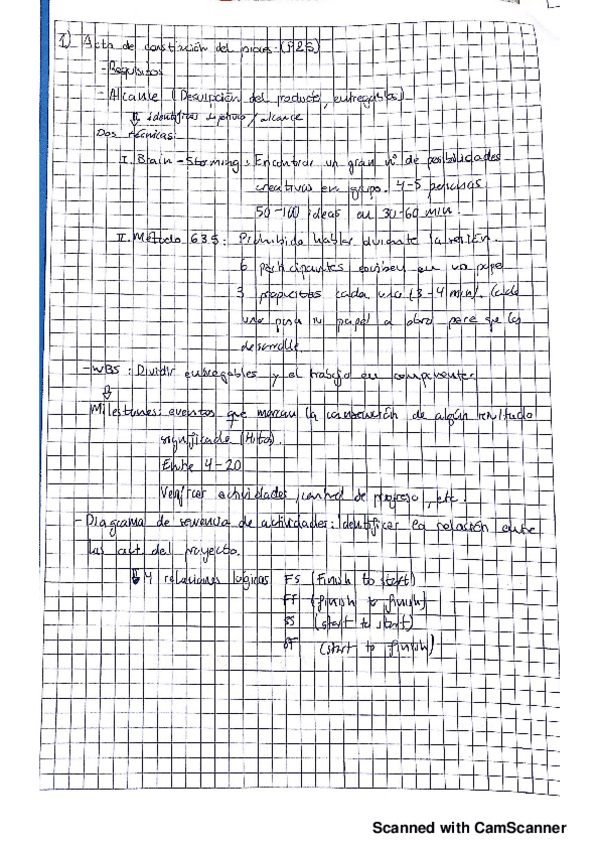 1) Acta de constitución del proy. (P25)
- Requisitos
- Alcance (Descripción del producto, entregables)
⇓ identificar objetivos / alcance
Dos técnicas:
I. Brain-Storming: Encontrar un gran nº de posibilidades
creativas en grupo. 4-5 personas
50-100 ideas en 30-60 min.
II. Método 635: Prohibido hablar durante la reunión.
6 participantes escriben en un papel
3 propuestas cada uno (3-4 min). Cada
uno pasa su papel a otro para que los
desarrolle.
- WBS: Dividir entregables y el trabajo en componentes
⇓
Milestones: eventos que marcan la consecución de algún resultado
significado (Hito).
Entre 4-20
Verificar actividades, control de progreso, etc.
- Diagrama de secuencia de actividades: Identificar la relación entre
las act. del proyecto.
⇓ 4 relaciones lógicas FS (Finish to start)
FF (finish to finish)
SS (start to start)
SF (start to finish)
Scanned with CamScanner